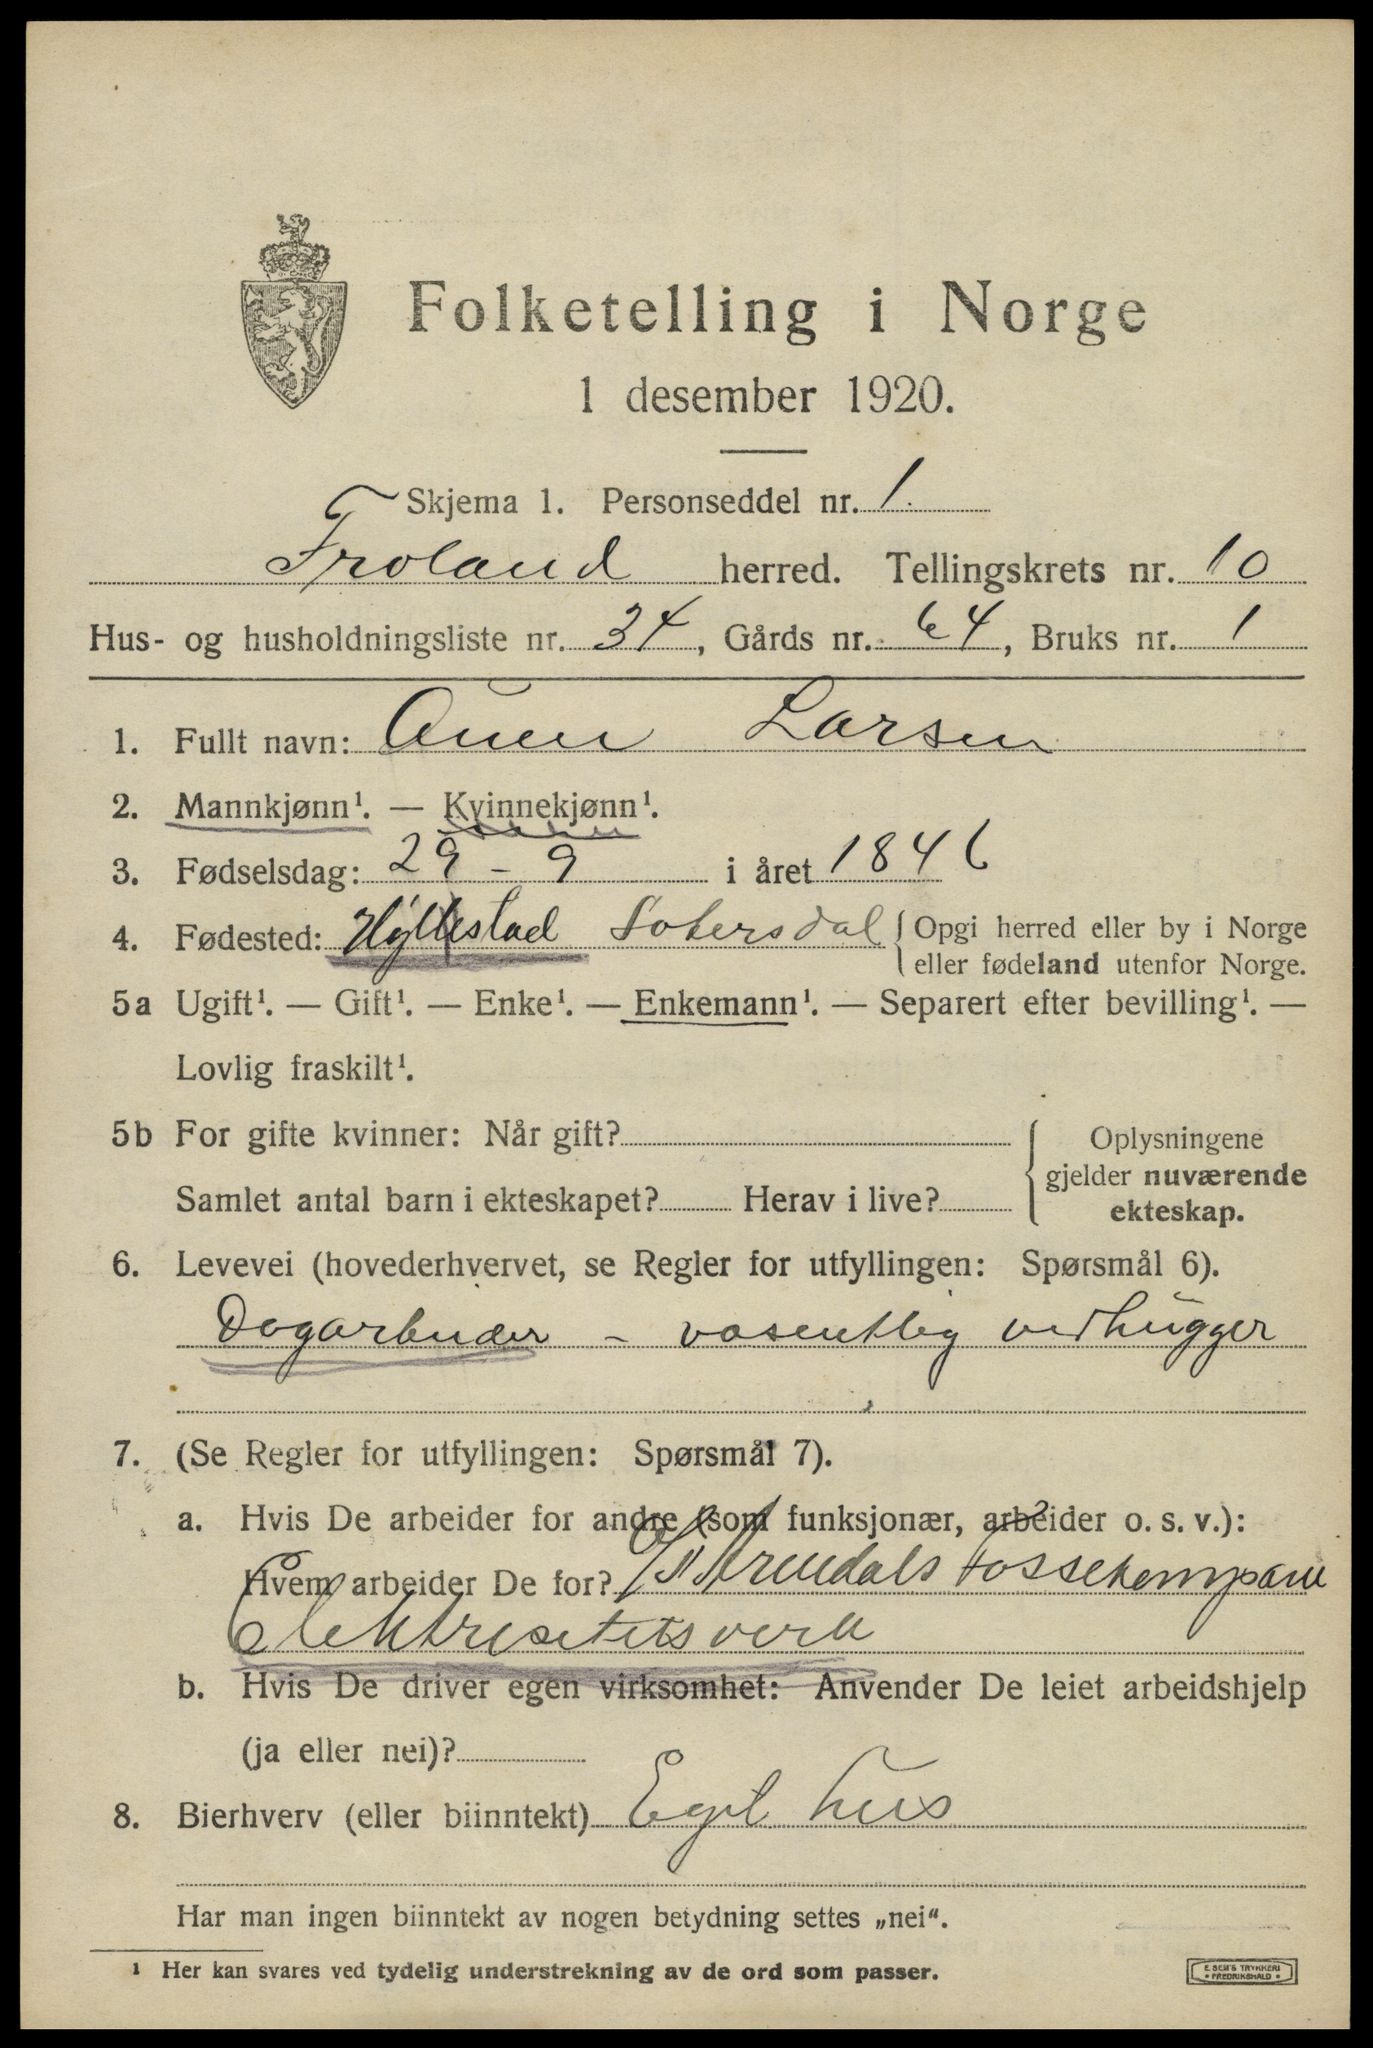 Folketelling i Norge
1 desember 1920.
Skjema 1. Personseddel nr. 1.
Froland herred. Tellingskrets nr. 10
Hus- og husholdningsliste nr. 34, Gårds nr. 64, Bruks nr. 1
1. Fullt navn: Auen Larsen
2. Mannkjønn¹. — Kvinnekjønn¹.
3. Fødselsdag: 29 - 9 i året 1846
4. Fødested: Hyllestad Setersdal { Opgi herred eller by i Norge
eller fødeland utenfor Norge.
5a Ugift¹. — Gift¹. — Enke¹. — Enkemann¹. — Separert efter bevilling¹. —
Lovlig fraskilt¹.
5b For gifte kvinner: Når gift?
Samlet antal barn i ekteskapet? Herav i live?
Oplysningene
gjelder nuværende
ekteskap.
6. Levevei (hovederhvervet, se Regler for utfyllingen: Spørsmål 6).
Dagarbeider - vasentlig vedhugger
7. (Se Regler for utfyllingen: Spørsmål 7).
a. Hvis De arbeider for andre (som funksjonær, arbeider o. s. v.):
Hvem arbeider De for? Arendals Fossekompani
Elektrisitetsverk
b. Hvis De driver egen virksomhet: Anvender De leiet arbeidshjelp
(ja eller nei)?
8. Bierhverv (eller biinntekt) Eget hus
Har man ingen biinntekt av nogen betydning settes „nei“.
¹ Her kan svares ved tydelig understrekning av de ord som passer.
E. SEM'S TRYKKERI
• FREDRIKSHALD •